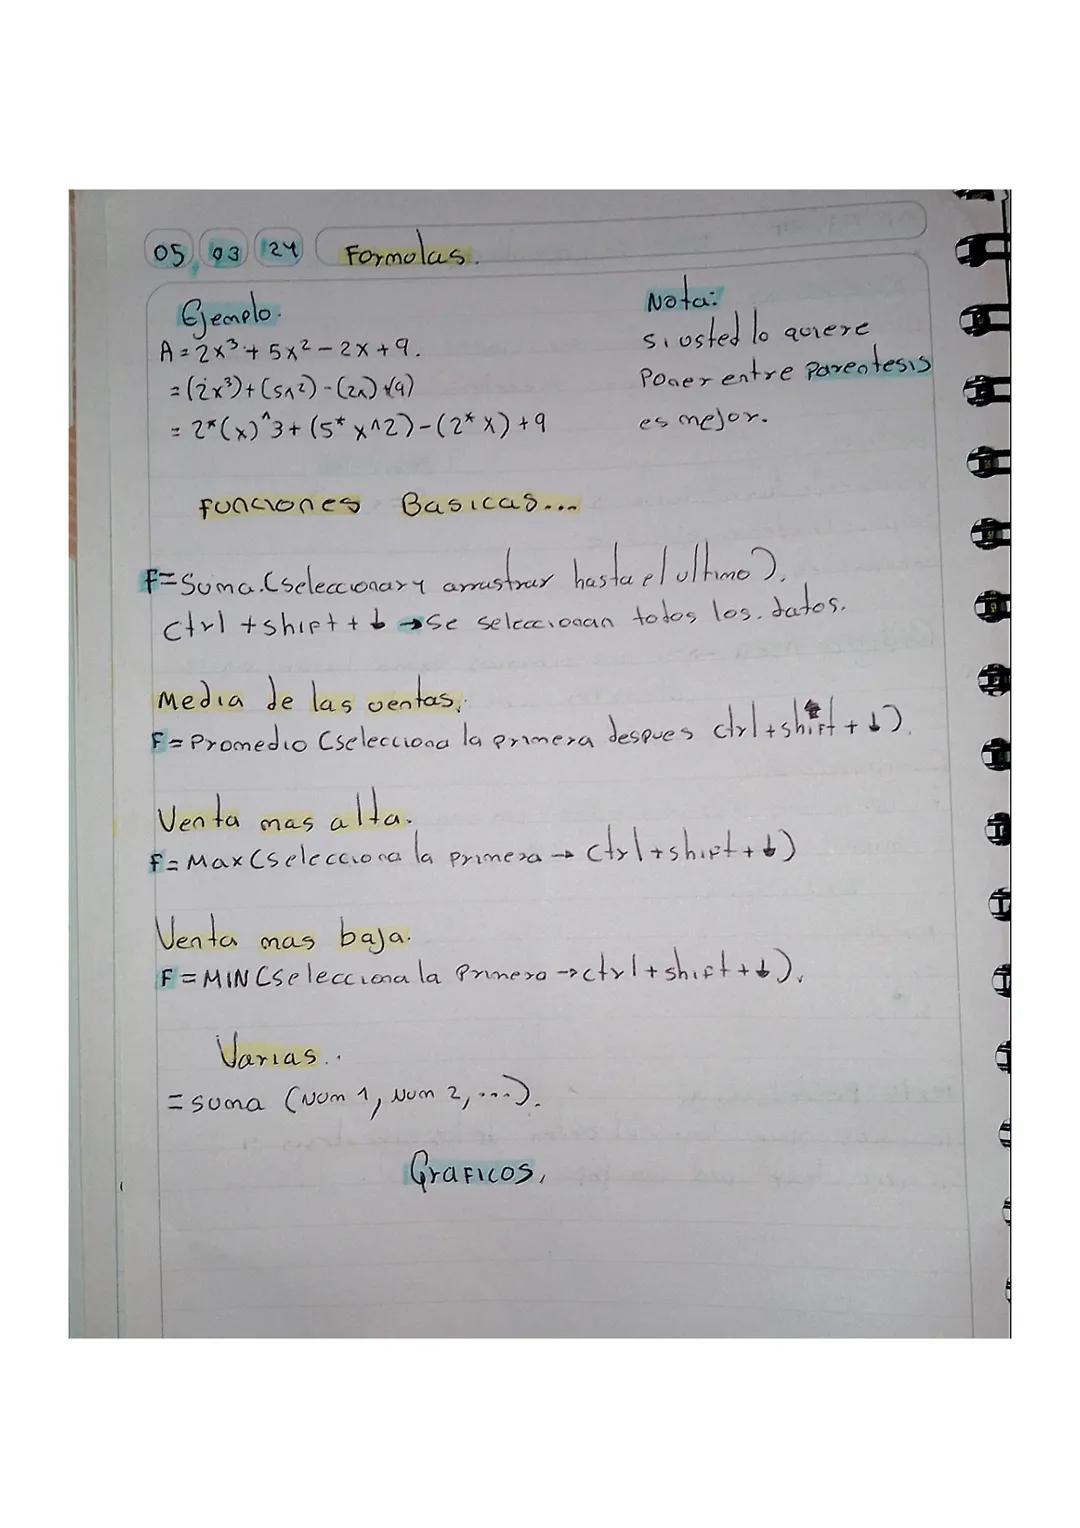 05 03 24 Formolas.
Ejemplo.
A = 2x³ + 5x² - 2x + 9.
= (2x³) + (5x²) - (2x) + (9)
= 2*(x)^3 + (5* x^2) - (2* x) + 9
Nota:
si usted lo quiere
Poner entre Parentesis
es mejor.
Funciones Basicas...
F= Suma. (seleccionar y arrastrar hasta el ultimo).
Ctrl + shift + ↓ → se seleccionan todos los. datos.
Media de las ventas.
F = Promedio (selecciona la primera despues ctrl + shift + ↓).
Venta mas alta.
F = Max (selecciona la primera → Ctrl + shift + ↓)
Venta mas baja.
F = MIN (selecciona la Primera → ctrl + shift + ↓).
Varias..
= suma (Num 1, Num 2, ...).
Graficos,